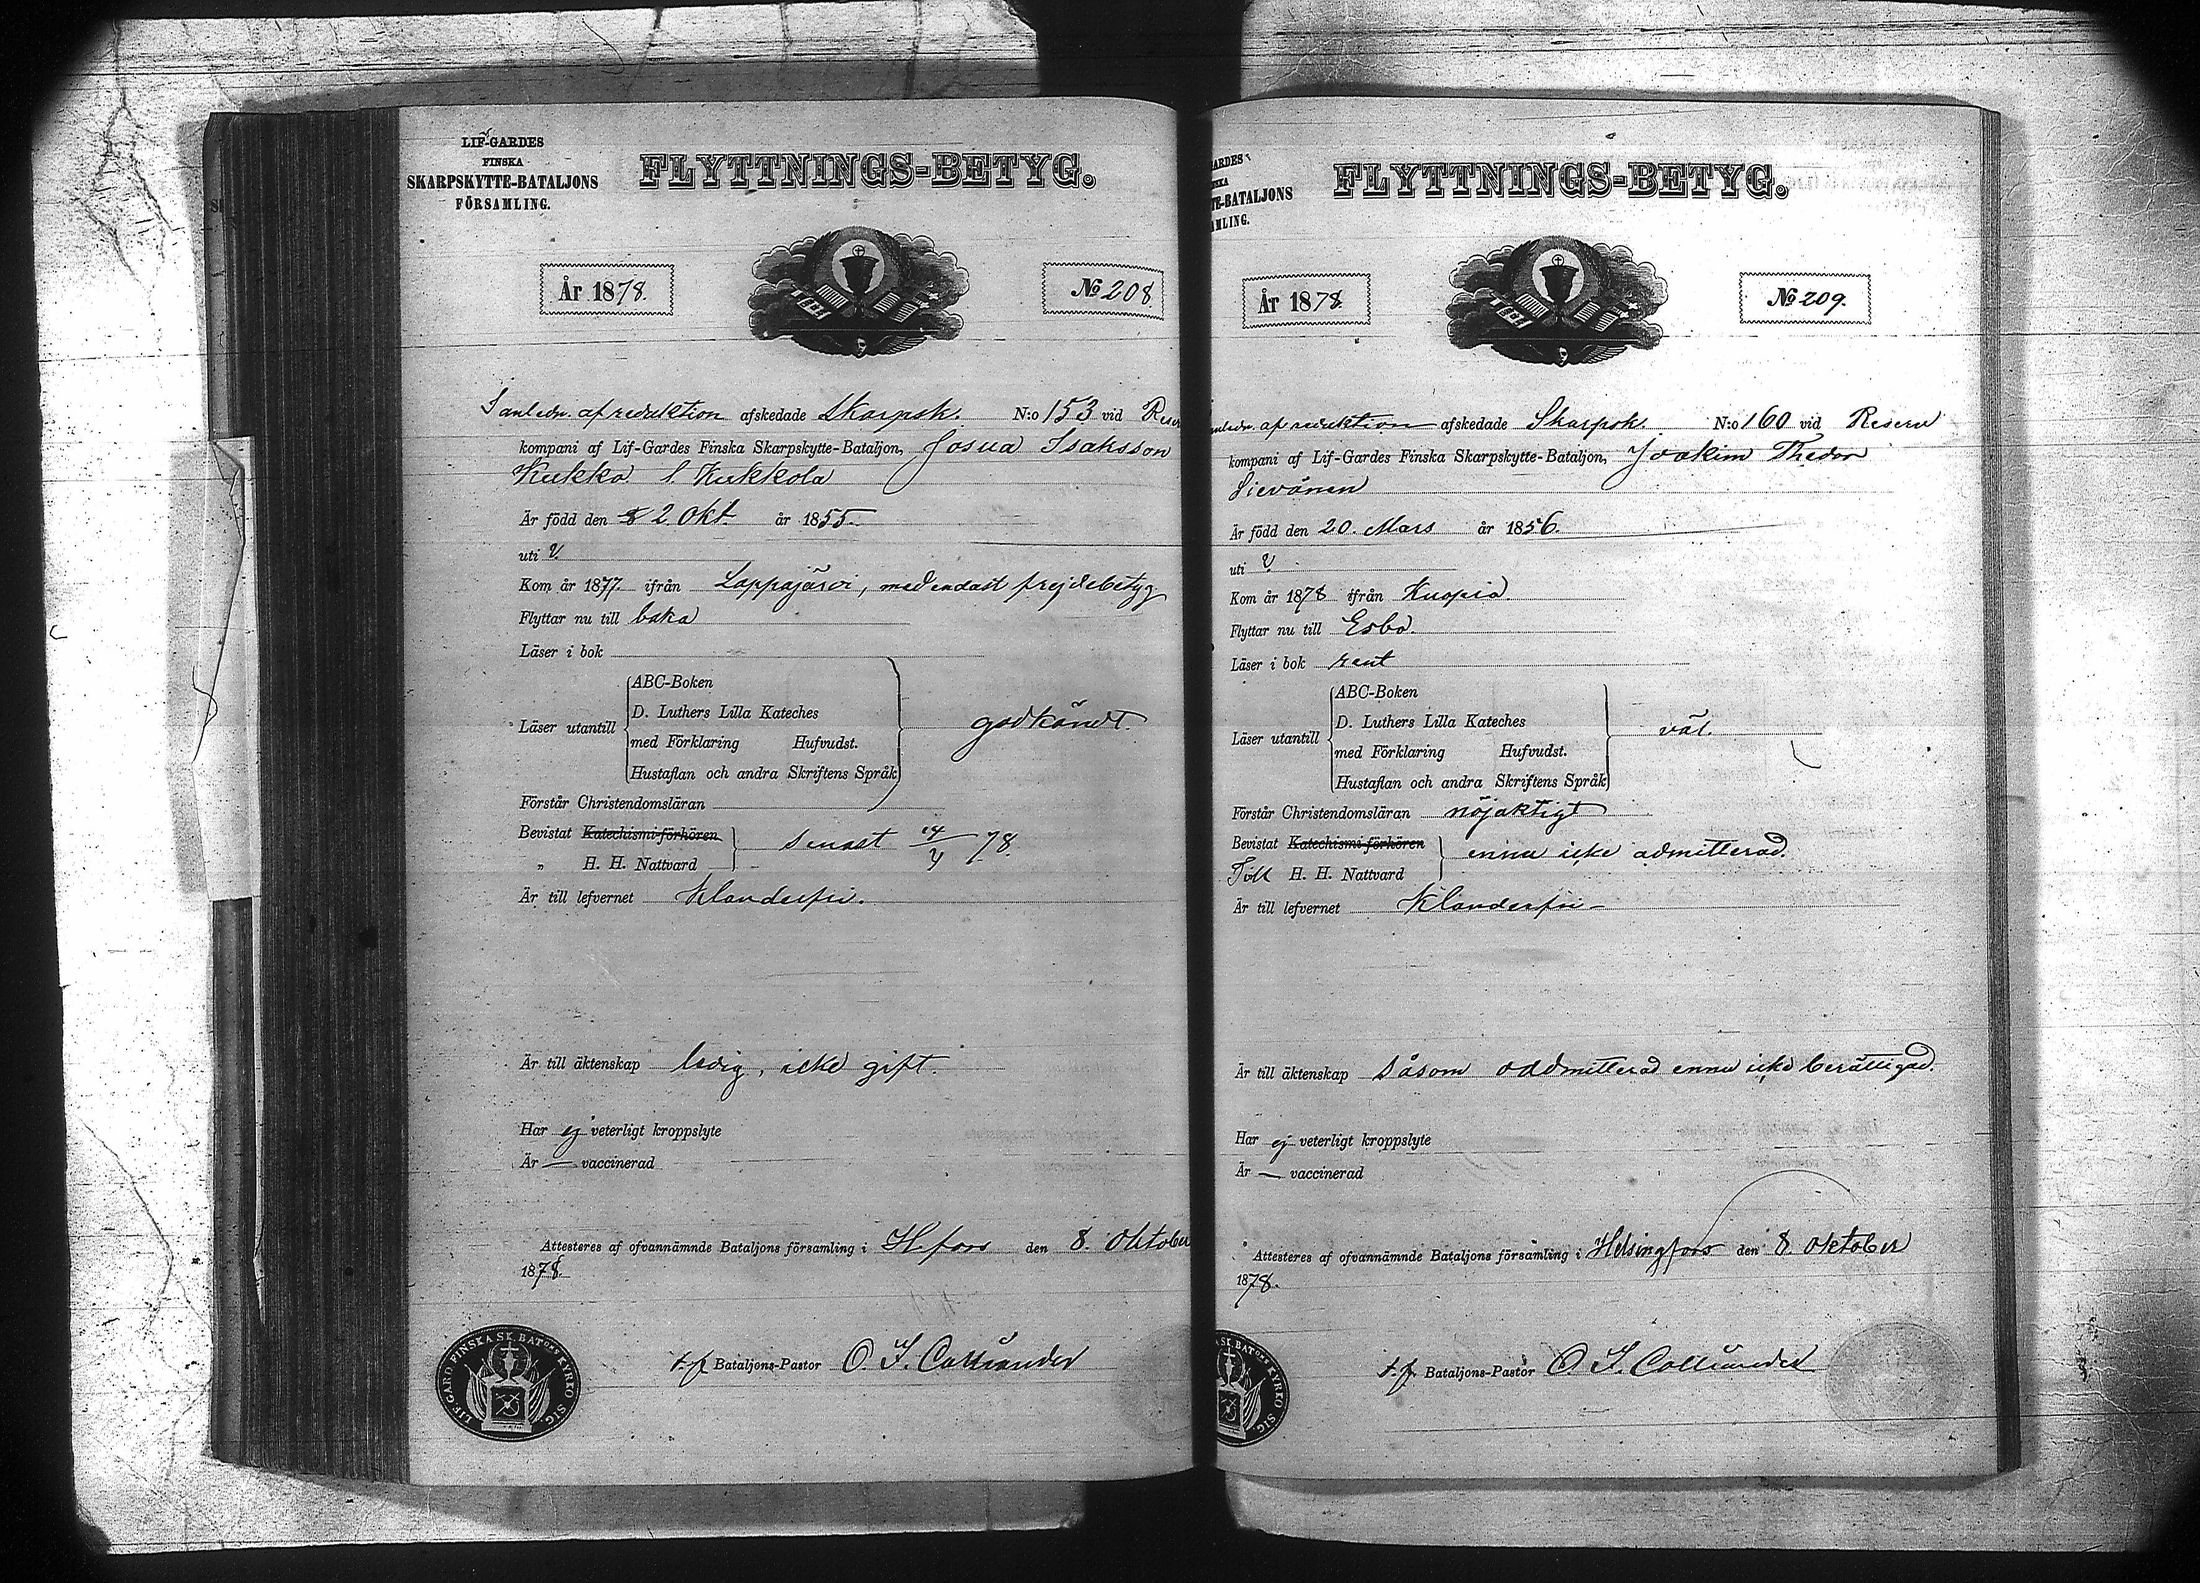 LIF-GARDES
FINSKA
SKARPSKYTTE-BATALJONS
FÖRSAMLING.
FLYTTNINGS-BETYG.
År 1878.
No 208
I anledn. af reduktion afskedade Skarpsk. N:o 153 vid Reserv
kompani af Lif-Gardes Finska Skarpskytte-Bataljon, Josua Isaksson
Kukko l. Kukkola
Är född den 2 Okt. år 1855
uti
Kom år 1877. ifrån Lappajärvi, med endast frejdebetyg
Flyttar nu till baka
Läser i bok
ABC-Boken
D. Luthers Lilla Kateches
Läser utantill
med Förklaring Hufvudst.
Hustaflan och andra Skriftens Språk
godkändt.
Förstår Christendomsläran
Bevistat Katechismi-förhören
„ H. H. Nattvard
senast 14/4 78.
Är till lefvernet Klanderfri.
Är till äktenskap ledig, icke gift.
Har ej veterligt kroppslyte
Är — vaccinerad
Attesteres af ofvannämnde Bataljons församling i H.fors den 8. Oktober
1878.
LIF. GARD. FINSKA SK. BAT:ONS KYRKO SIG.
t.f. Bataljons-Pastor O. I. Colliander
ARDES
SKA
TE-BATALJONS
AMLING.
FLYTTNINGS-BETYG.
År 1878.
No 209.
anledn. af reduktion afskedade Skarpsk. N:o 160 vid Reserv
kompani af Lif-Gardes Finska Skarpskytte-Bataljon, Joakim Thedor
Sievänen
Är född den 20. Mars år 1856.
uti
Kom år 1878 ifrån Kuopio.
Flyttar nu till Esbo.
Läser i bok rent
ABC-Boken
D. Luthers Lilla Kateches
Läser utantill
med Förklaring Hufvudst.
Hustaflan och andra Skriftens Språk
väl.
Förstår Christendomsläran nöjaktigt
Bevistat Katechismi-förhören
Till H. H. Nattvard
ennu icke admitterad.
Är till lefvernet Klanderfri
Är till äktenskap såsom oadmitterad ennu icke berättigad.
Har ej veterligt kroppslyte
Är — vaccinerad
Attesteres af ofvannämnde Bataljons församling i Helsingfors den 8 Oktober
1878.
SK. BAT:ONS KYRKO SIG.
t.f. Bataljons-Pastor O. I. Colliander